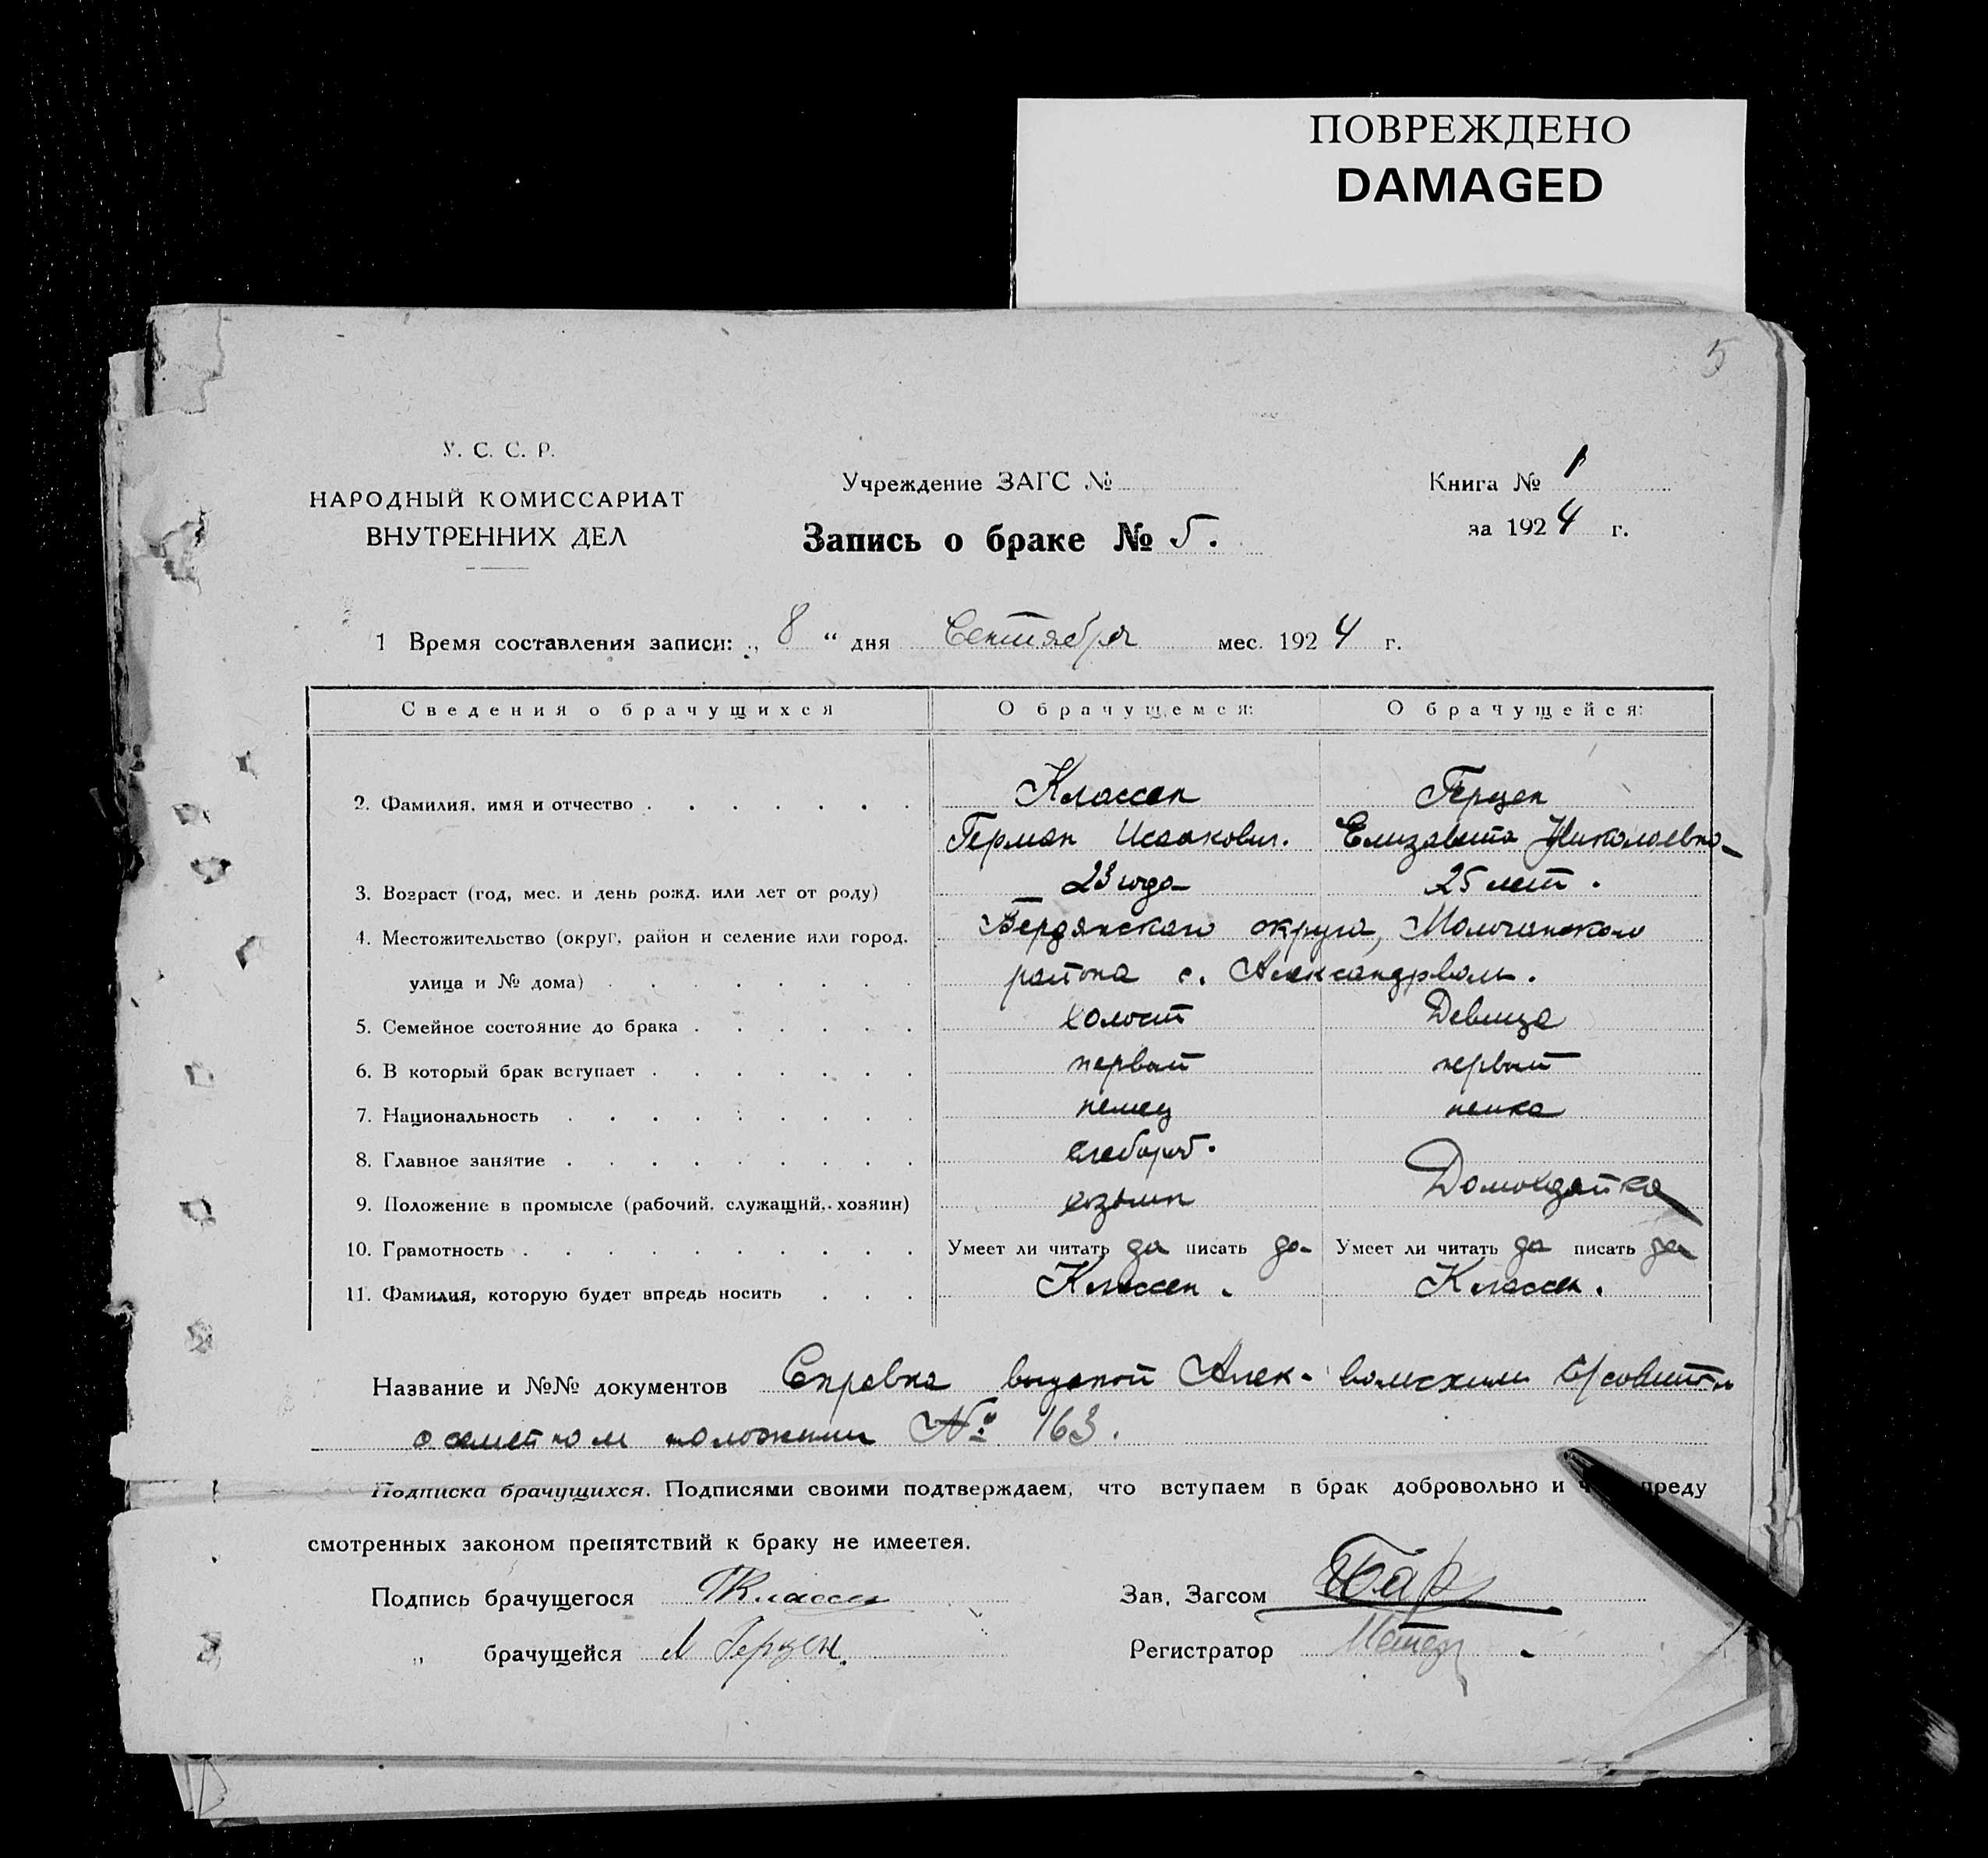 ПОВРЕЖДЕНО
DAMAGED
5
У. С. С. Р.
НАРОДНЫЙ КОМИССАРИАТ
ВНУТРЕННИХ ДЕЛ
Учреждение ЗАГС №
Запись о браке № 5.
Книга № 1
за 1924 г.
1 Время составления записи: „ 8 “ дня Сентября мес. 1924 г.
Сведения о брачущихся О брачущемся: О брачущейся:
2. Фамилия, имя и отчество Классен Герцен
Герман Исаакович. Елизавета Николаевна
3. Возраст (год, мес. и день рожд. или лет от роду) 23 года 25 лет.
4. Местожительство (округ, район и селение или город, Бердянского округа, Молочанского
улица и № дома) района с. Александрволь.
5. Семейное состояние до брака холост Девица
6. В который брак вступает первый первый
7. Национальность немец немка
8. Главное занятие хлебороб.
9. Положение в промысле (рабочий, служащий, хозяин) хозяин Домохозяйка
10. Грамотность Умеет ли читать да писать да Умеет ли читать да писать да
11. Фамилия, которую будет впредь носить Классен. Классен.
Название и №№ документов Справка выданой Алек-вольским
о семейном положении № 163.
Подписка брачущихся. Подписями своими подтверждаем, что вступаем в брак добровольно и преду
смотренных законом препятствий к браку не имеетея.
Подпись брачущегося Г Классен Зав. Загсом
„ брачущейся Герцен. Регистратор